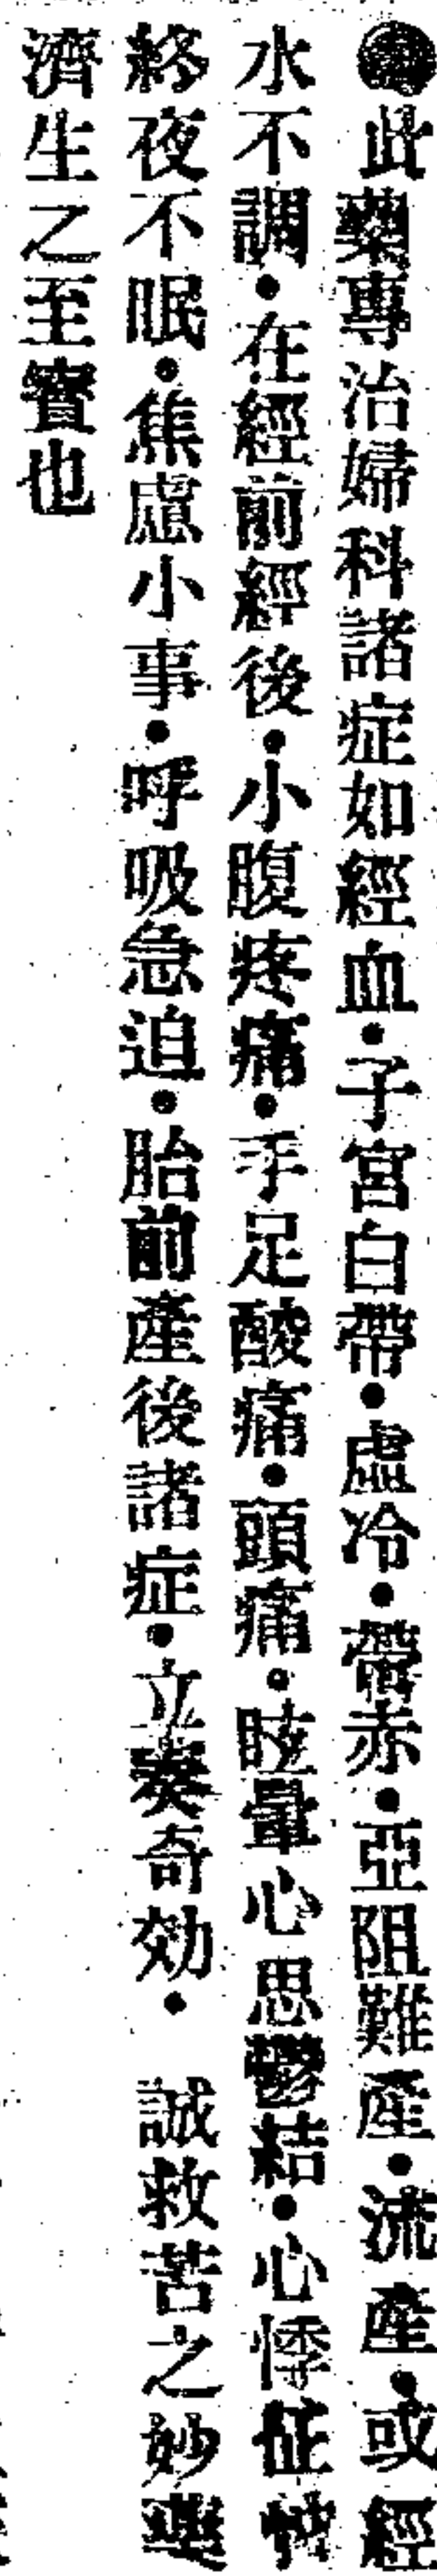 此藥專治婦科諸症如經血•子宮白帶•虛冷•帶赤•亞阻難產•流產•或經
水不調•在經前經後•小腹疼痛•手足酸痛•頭痛•眩暈心思鬱結•心悸怔忡
終夜不眠•焦慮小事•呼吸急迫•胎前產後諸症•立奏奇効•　誠救苦之妙藥
濟生之至寶也